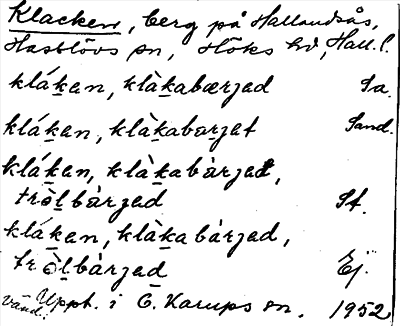 Klacken, berg på Hallandsås,
Hasslövs sn, Höks hd, Hall. l.
klák̲en, klàk̲abærjed Sa.
klák̲en, klàk̲abærjet Sand.
klák̲en, klàk̲abàrjed,
tròl̲bàrjed St.
klák̲en, klàk̲abàrjed,
tròl̲bàrjed Ej.
vänd! Uppt. i Ö. Karups sn. 1952